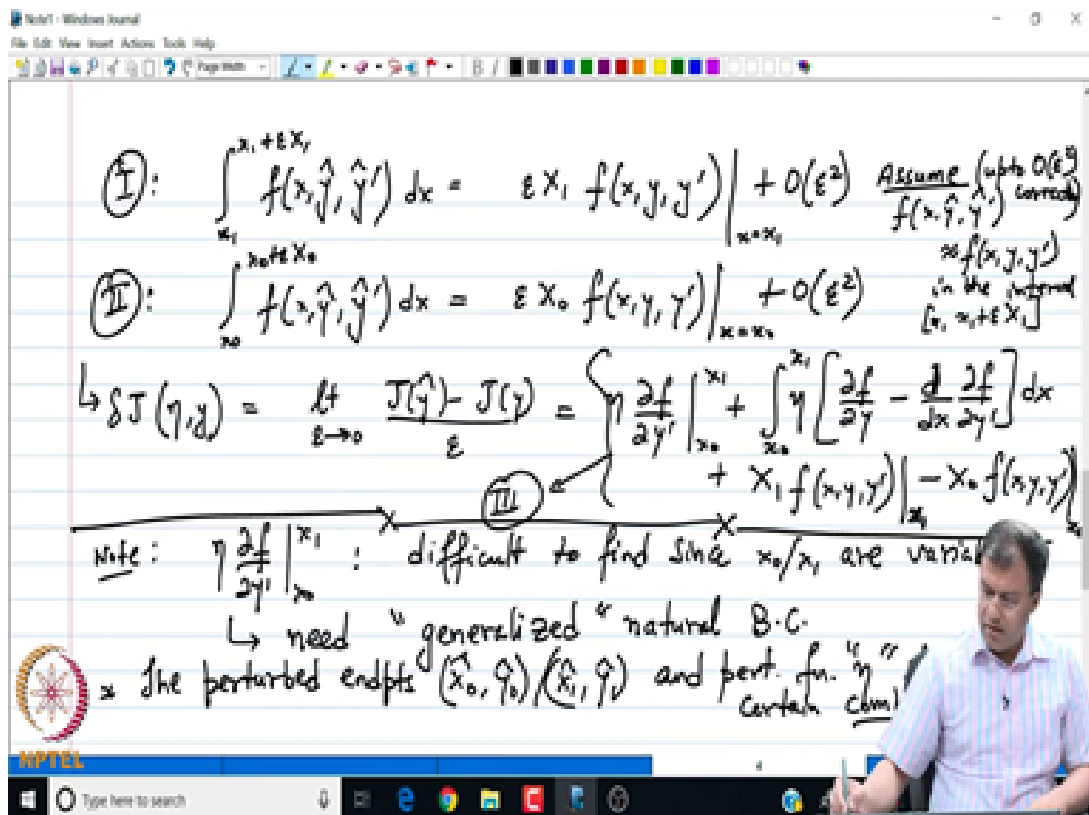 Note1 - Windows Journal
File Edit View Insert Actions Tools Help
Page Width B I
Ⓘ: ∫_{x₁}^{x₁+εX₁} f(x,ŷ,ŷ') dx = εX₁ f(x,y,y')|_{x=x₁} + O(ε²) Assume (upto O(ε²) correct) f(x,ŷ,ŷ')
≈ f(x,y,y')
in the interval
[x₁ x₁+εX₁]
Ⅱ: ∫_{x₀}^{x₀+εX₀} f(x,ŷ,ŷ') dx = εX₀ f(x,y,y')|_{x=x₀} + O(ε²)
↳ δJ(η,y) = lt_{ε→0} (J(ŷ) - J(y))/ε = { η ∂f/∂y' |_{x₀}^{x₁} + ∫_{x₀}^{x₁} η [∂f/∂y - d/dx ∂f/∂y'] dx
Ⅲ + X₁ f(x,y,y')|_{x₁} - X₀ f(x,y,y')|
Note: η ∂f/∂y' |_{x₀}^{x₁} : difficult to find since x₀/x₁ are
↳ need "generalized" natural B.C.
* The perturbed endpts (x̂₀, ŷ₀)/(x̂₁, ŷ₁) and pert. fn. "η"
certain
NPTEL
Type here to search